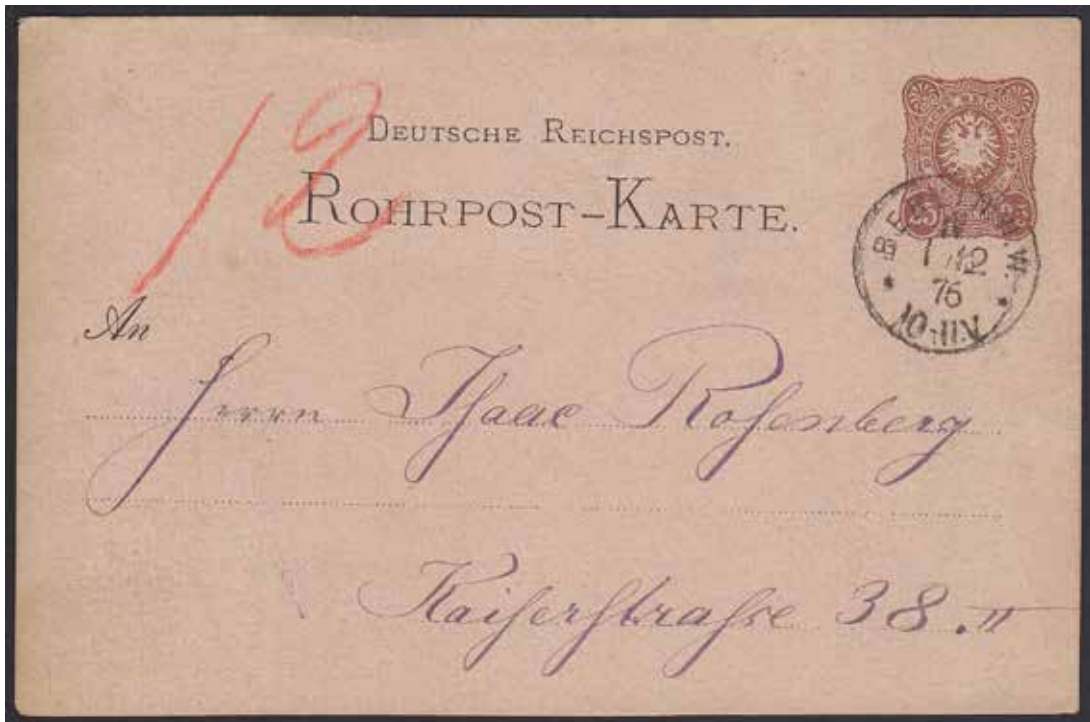 12
DEUTSCHE REICHSPOST.
ROHRPOST-KARTE.
25 25
BERLIN N.W.
1 12
76
10-11V.
An
Herrn Isaac Rosenberg
Kaiserstrasse 38.II